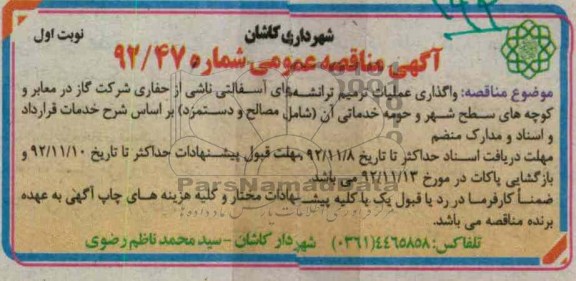 شهرداری کاشان
نوبت اول
آگهی مناقصه عمومی شماره ۹۲/۴۷
موضوع مناقصه: واگذاری عملیات ترمیم ترانشه‌های آسفالتی ناشی از حفاری شرکت گاز در معابر و
کوچه های سطح شهر و حومه خدماتی آن (شامل مصالح و دستمزد) بر اساس شرح خدمات قرارداد
و اسناد و مدارک منضم
مهلت دریافت اسناد حداکثر تا تاریخ ۹۲/۱۱/۸ مهلت قبول پیشنهادات حداکثر تا تاریخ ۹۲/۱۱/۱۰ و
بازگشایی پاکات در مورخ ۹۲/۱۱/۱۳ می باشد
ضمناً کارفرما در رد یا قبول یک یا کلیه پیشنهادات مختار و کلیه هزینه های چاپ آگهی به عهده
برنده مناقصه می باشد.
تلفاکس: ٤٤٦٥٨٥٨(٠٣٦١) شهردار کاشان - سید محمد ناظم رضوی
ParsNamadData